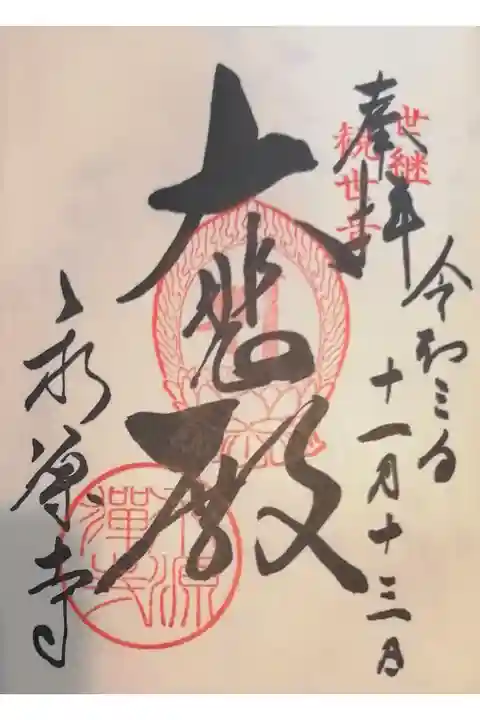 奉拝
世継
観世音
令和三年
十一月十三日
大悲殿
永源寺
永源
禪寺